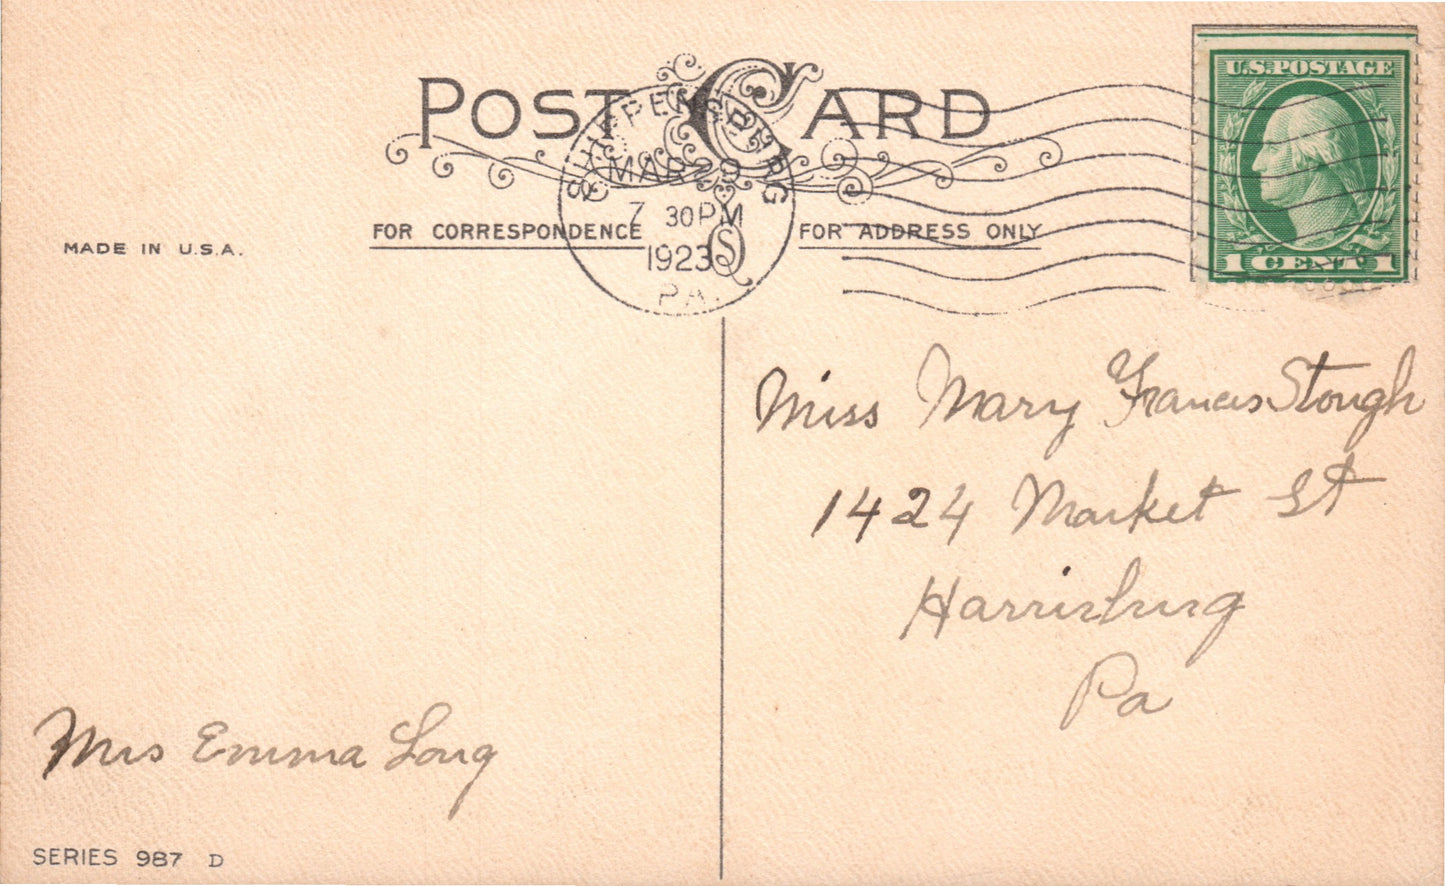 POST CARD
SHIPPENSBURG
MAR 29
7 30PM
1923
PA.
U.S. POSTAGE
1 CENT 1
MADE IN U.S.A.
FOR CORRESPONDENCE
FOR ADDRESS ONLY
Miss Mary Francis Stough
1424 Market St
Harrisburg
Pa
Mrs Emma Long
SERIES 987 D